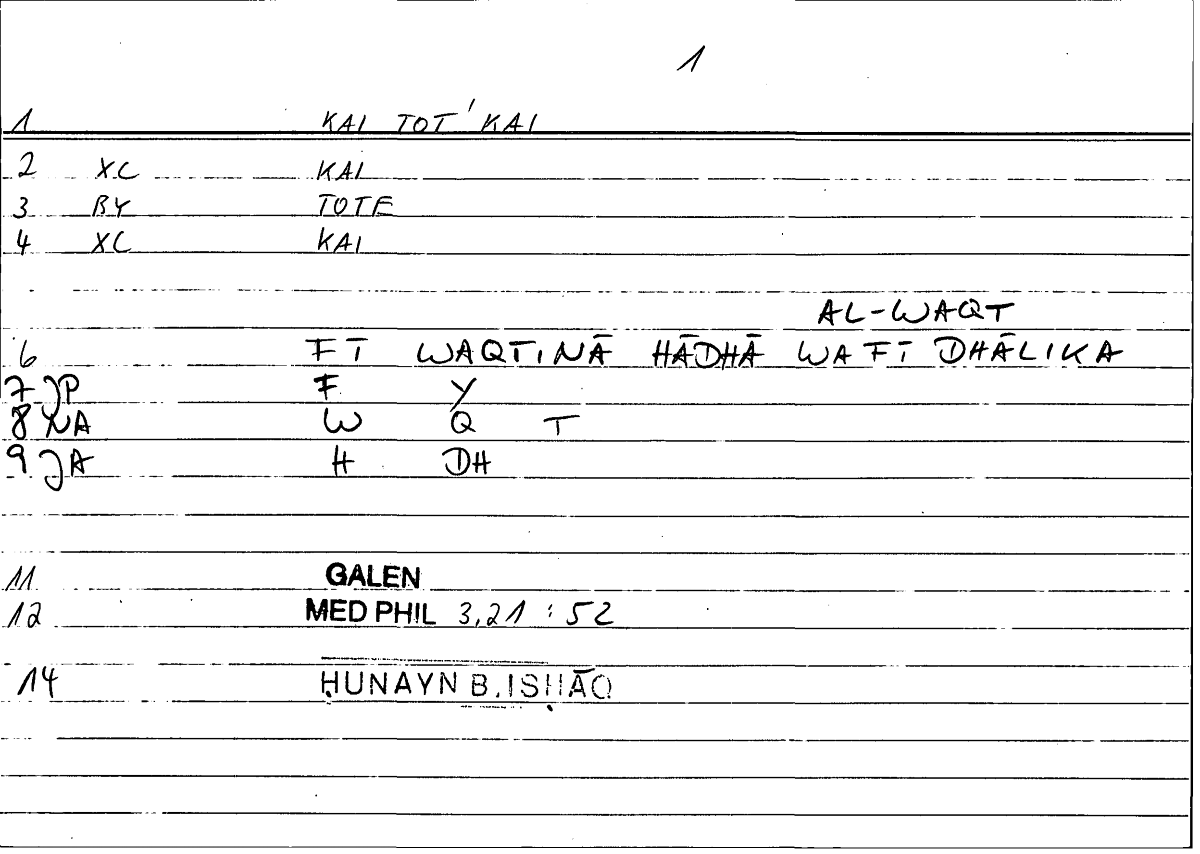 1
1 KAI TOT' KAI
2 XC KAI
3 BY TOTE
4 XC KAI
AL-WAQT
6 FĪ WAQTINĀ HĀDHĀ WA FĪ DHĀLIKA
7 JP F Y
8 NA W Q T
9 JA H DH
11 GALEN
12 MED PHIL 3,21 : 52
14 ḤUNAYN B. ISḤĀQ